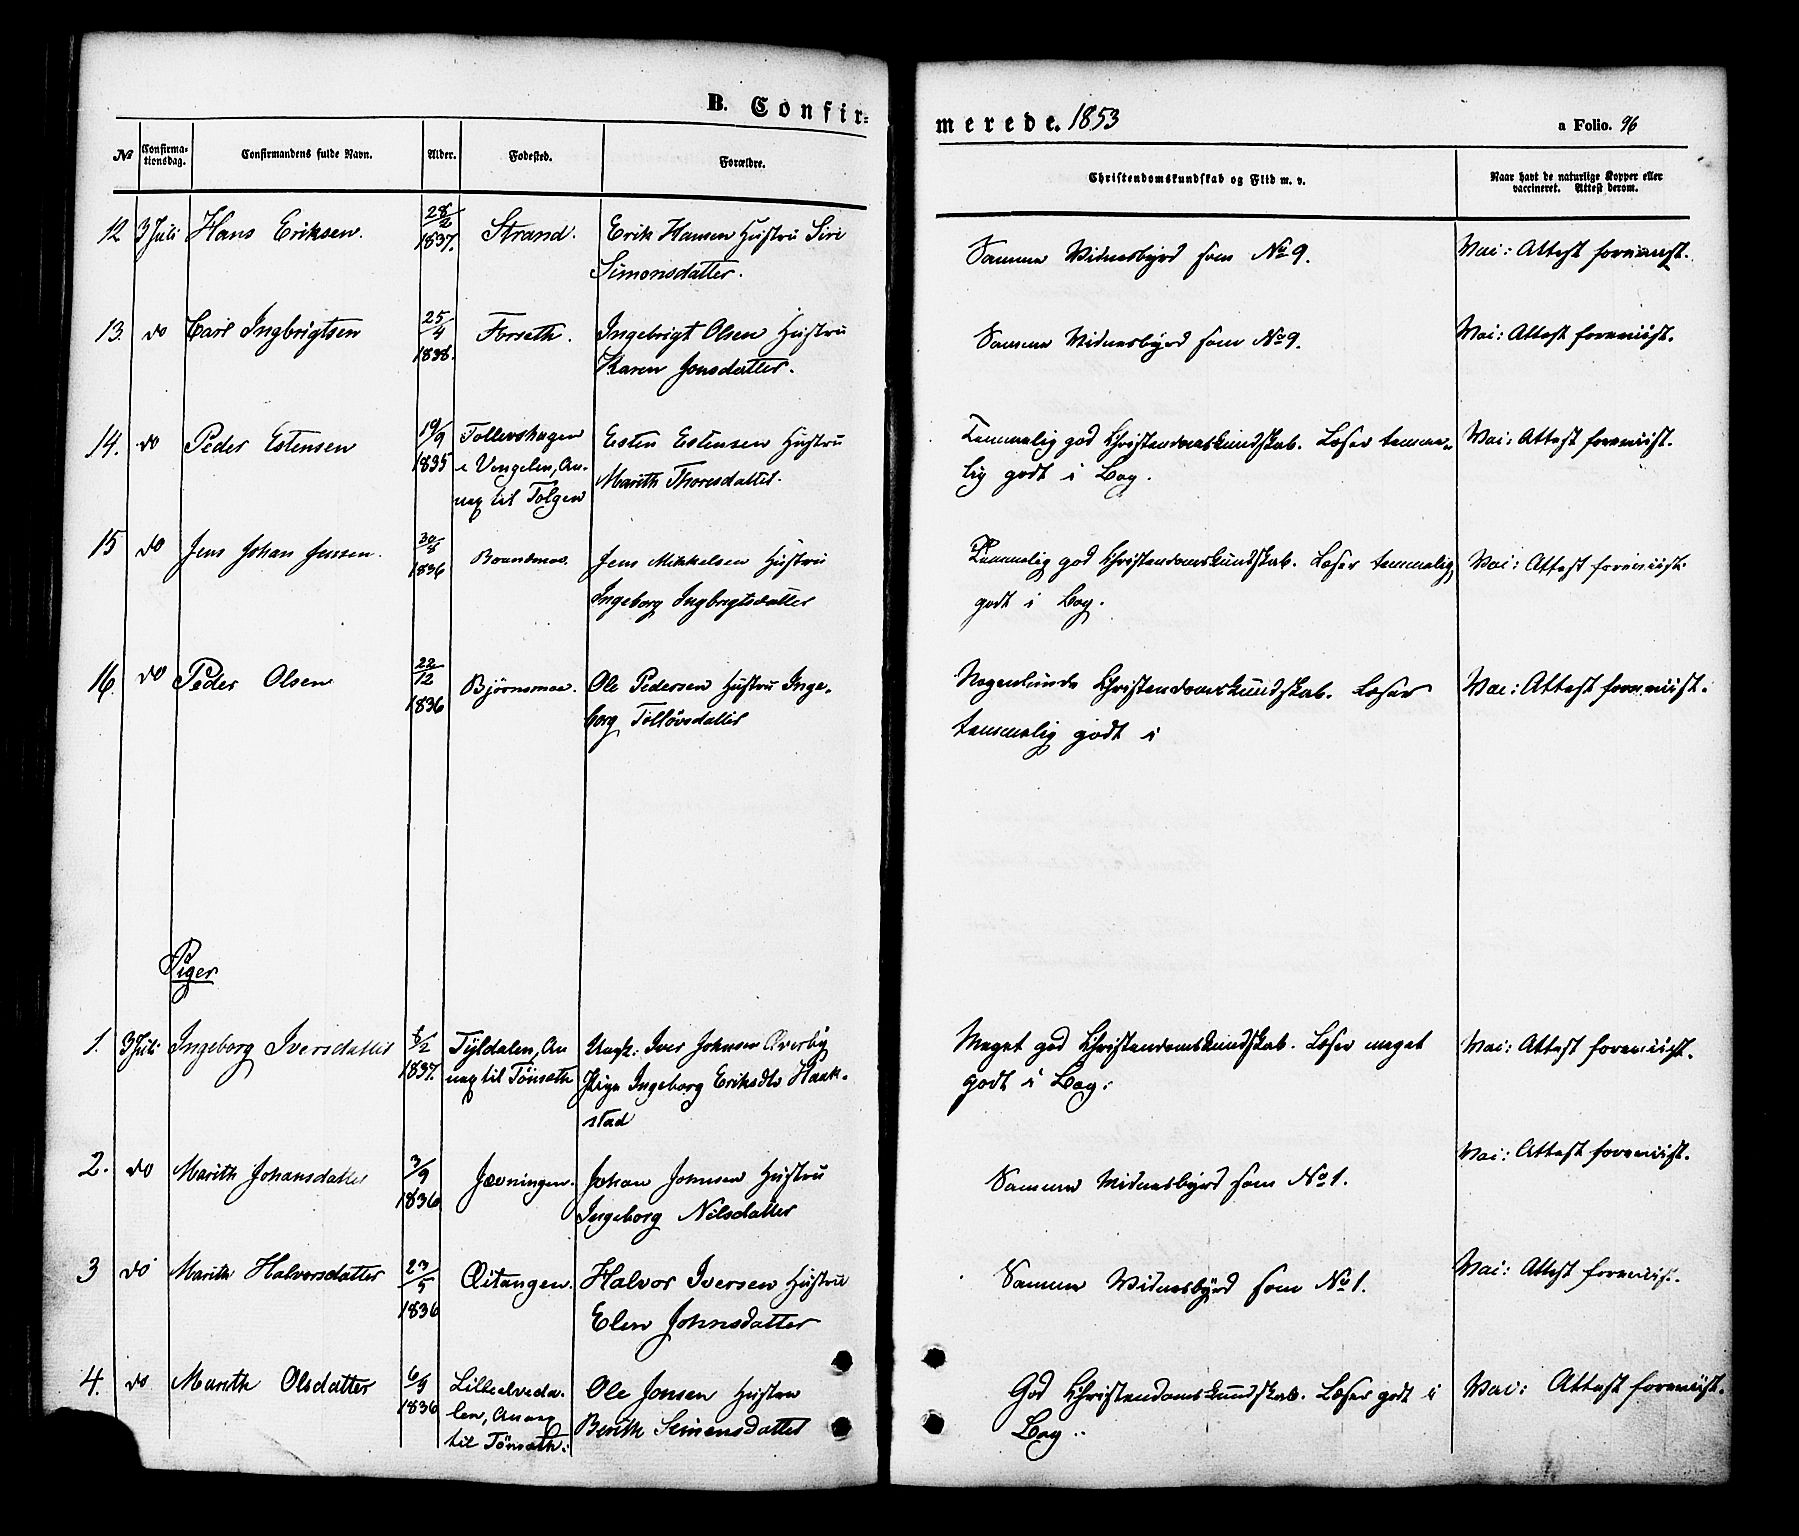 B. Confirmerede. 1853
a Folio. 96
№ Confirmationsdag. Confirmandens fulde Navn. Alder. Fødested. Forældre. Christendomskundskab og Flid m. v. Naar havt de naturlige Kopper eller vaccineret. Attest derom.
12 3 Juli Hans Eriksen. 28/2 1837. Strand. Erik Hansen Hustru Siri
Simonsdatter.
Samme Vidnesbyrd som No 9.
Vac: Attest foreviist.
13. do Carl Ingbrigtsen 25/4 1838. Forseth. Ingebrigt Olsen Hustru
Karen Jonsdatter.
Samme Vidnesbyrd som No 9.
Vac: Attest foreviist.
14. do Peder Estensen 19/9 1835 Tollevshagen
i Vingelen, An-
nex til Tolgen
Esten Estensen Hustru
Marith Thoresdatter.
Temmelig god Christendomskundskab. Læser temme-
lig godt i Bog.
Vac: Attest foreviist.
15 do Jens Johan Jensen. 30/8 1836 Brandmoe. Jens Mikkelsen Hustru
Ingeborg Ingbrigtsdatter
Temmelig god Christendomskundskab. Læser temmelig
godt i Bog.
Vac: Attest foreviist.
16. do Peder Olsen 22/12 1836 Bjørnsmoe. Ole Pedersen Hustru Inge-
borg Tølløvsdatter
Nogenlunde Christendomskundskab. Læser
temmelig godt i
Vac: Attest foreviist.
Piger
1. 3 Juli Ingeborg Iversdatter /2 1837. Tyldalen, An
nex til Tönseth
Ungk: Iver Johnsen Averby
Pige Ingeborg Eriksdtr Haak-
stad
Meget god Christendomskundskab. Læser meget
godt i Bog.
Vac: Attest foreviist.
2. do Marith Johansdatter 3/9 1836 Jævningen. Johan Johnsen Hustru
Ingeborg Nilsdatter
Samme Vidnesbyrd som No 1.
Vac: Attest foreviist.
3 do Marith Halvorsdatter 23/5 1836 Qvitangen. Halvor Iversen Hustru
Elen Johnsdatter
Samme Vidnesbyrd som No 1.
Vac: Attest foreviist.
4. do Marith Olsdatter 6/9 1836 Lilleelveda-
len, Annex
til Tönseth.
Ole Jonsen Hustru
Berith Simensdatter
God Christendomskundskab. Læser godt i
Bog.
Vac: Attest foreviist.